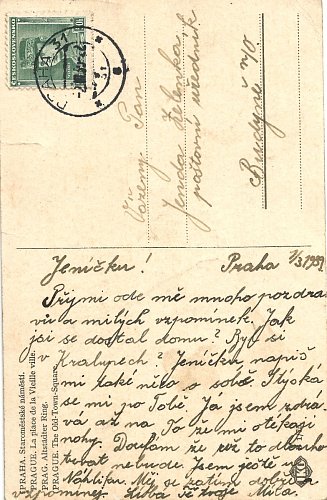 PRAHA 31
Vážený Pan
Jenda
poštovní úředník
Budyně n/O.
Praha 7/3.1939
Jeníčku!
Přijmi ode mě mnoho pozdra
vů a milých vzpomínek. Jak
jsi se dostal domu? Byl si
v Kralupech? Jeníčku napiš
mi také něco o sobě. Stýská
se mi po Tobě. Já jsem zdrá
vá až na To že mi otékají
nohy. Doufám že již to dlouho
trvat nebude. Jsem ještě u
Měj se zatím dobře a
vzpomínej. Líbá tě tvoje
PRAHA. Staroměstské náměstí.
PRAGUE. La place de la Vieille ville.
PRAG. Altstädter Ring.
PRAGUE. The Old-Town-Square.